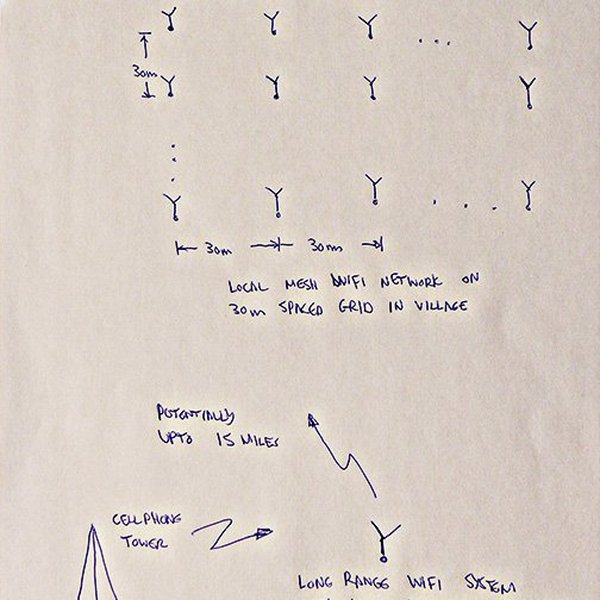 30m
30m
30m
LOCAL MESH WIFI NETWORK ON
30m SPACED GRID IN VILLAGE
POTENTIALLY
UPTO 15 MILES
CELLPHONE
TOWER
LONG RANGE WIFI SYSTEM